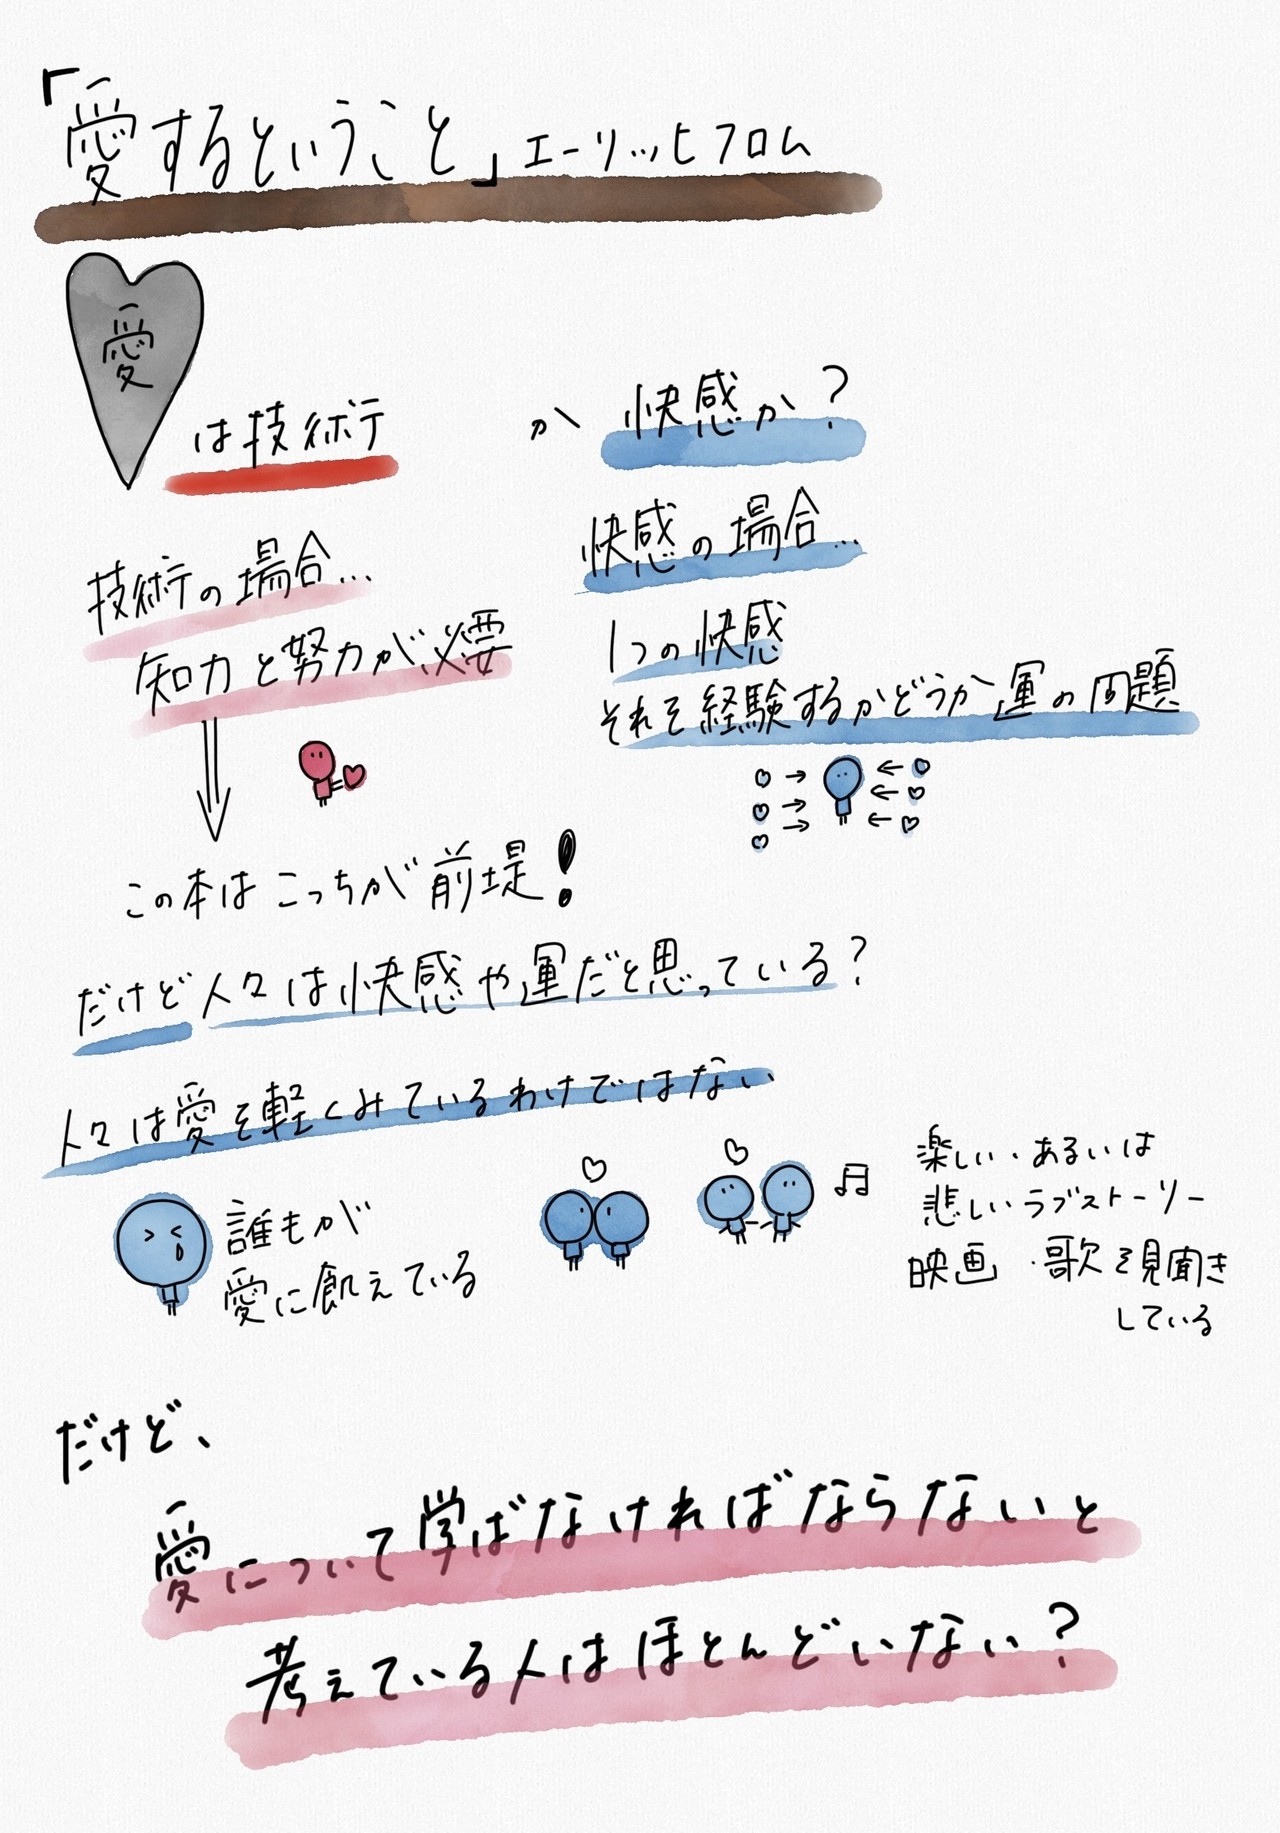 「愛するということ」エーリッヒフロム
愛
は技術 か 快感か?
技術の場合...
知力と努力が必要
快感の場合...
1つの快感
それを経験するかどうか運の問題
この本はこっちが前堤!
だけど人々は快感や運だと思っている?
人々は愛を軽くみているわけではない
誰もが
愛に飢えている
楽しい・あるいは
悲しいラブストーリー
映画・歌を見聞き
している
だけど、
愛について学ばなければならないと
考えている人はほとんどいない?